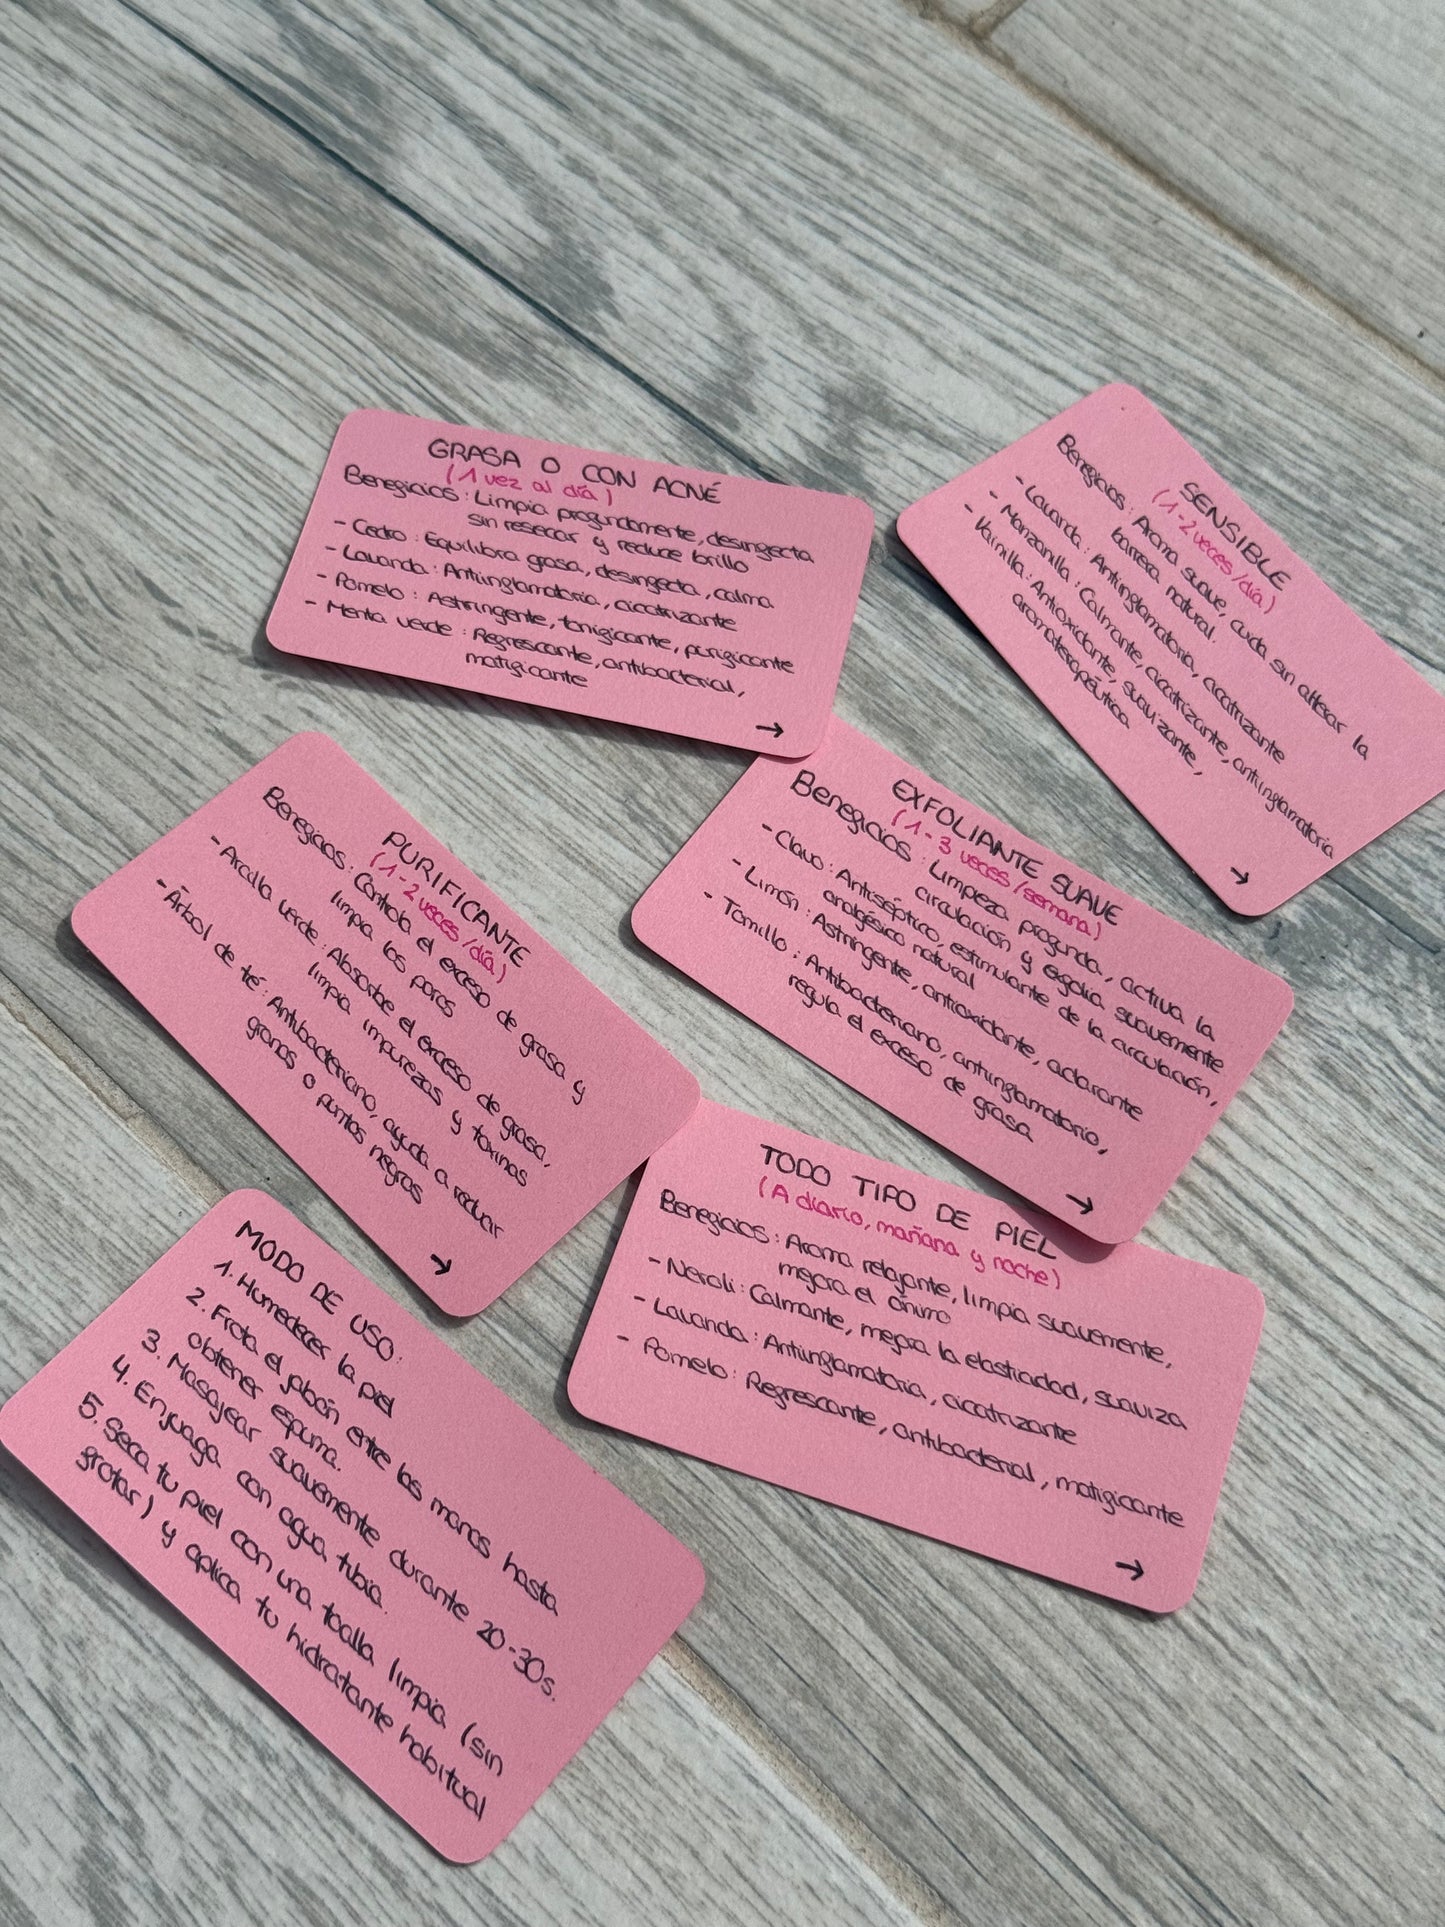 GRASA O CON ACNÉ
(1 vez al día)
Beneficios: Limpia profundamente, desinfecta
sin resecar y reduce brillo
- Cedro: Equilibra grasa, desinfecta, calma
- Lavanda: Antiinflamatoria, cicatrizante
- Pomelo: Astringente, tonificante, purificante
- Menta verde: Refrescante, antibacterial,
matificante
→
SENSIBLE
(1-2 veces/día)
Beneficios: Aroma suave, cuida sin alterar la
barrera natural.
- Lavanda: Antiinflamatoria, cicatrizante
- Manzanilla: Calmante, cicatrizante, antiinflamatoria
- Vainilla: Antioxidante, suavizante,
aromaterapéutica
→
PURIFICANTE
(1-2 veces/día)
Beneficios: Controla el exceso de grasa y
limpia los poros
- Arcilla verde: Absorbe el exceso de grasa,
limpia impurezas y toxinas
- Árbol de té: Antibacteriano, ayuda a reducir
granos o puntos negros
→
EXFOLIANTE SUAVE
(1-3 veces/semana)
Beneficios: Limpieza profunda, activa la
circulación y exfolia suavemente
- Clavo: Antiséptico, estimulante de la circulación,
analgésico natural
- Limón: Astringente, antioxidante, aclarante
- Tomillo: Antibacteriano, antiinflamatorio,
regula el exceso de grasa
→
TODO TIPO DE PIEL
(A diario, mañana y noche)
Beneficios: Aroma relajante, limpia suavemente,
mejora el ánimo
- Neroli: Calmante, mejora la elasticidad, suaviza
- Lavanda: Antiinflamatoria, cicatrizante
- Pomelo: Refrescante, antibacterial, matificante
→
MODO DE USO:
1. Humedecer la piel
2. Frota el jabón entre las manos hasta
obtener espuma.
3. Masajear suavemente durante 20-30s.
4. Enjuaga con agua tibia.
5. Seca tu piel con una toalla limpia (sin
frotar) y aplica tu hidratante habitual